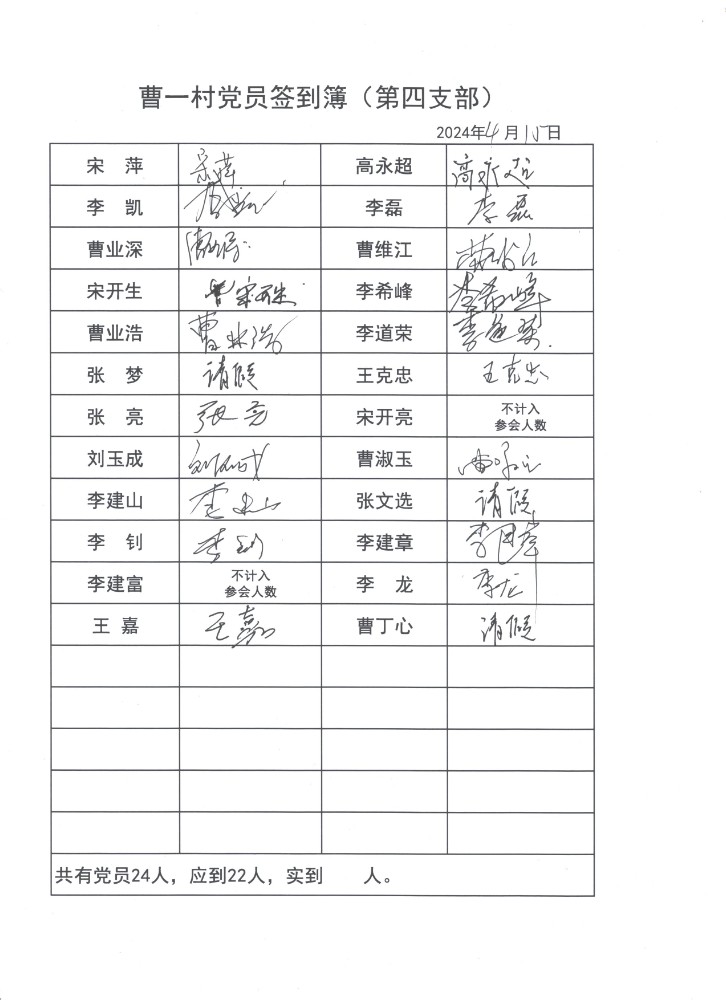 曹一村党员签到簿（第四支部）
2024年4月15日
宋 萍 宋萍 高永超 高永超
李 凯 李凯 李磊 李磊
曹业深 曹维江 曹维江
宋开生 李希峰 李希峰
曹业浩 曹业浩 李道荣 李道荣
张 梦 请假 王克忠 王克忠
张 亮 张亮 宋开亮 不计入
参会人数
刘玉成 刘玉成 曹淑玉
李建山 李建山 张文选 请假
李 钊 李钊 李建章 李建章
李建富 不计入
参会人数 李 龙 李龙
王 嘉 王嘉 曹丁心 请假
共有党员24人，应到22人，实到 人。